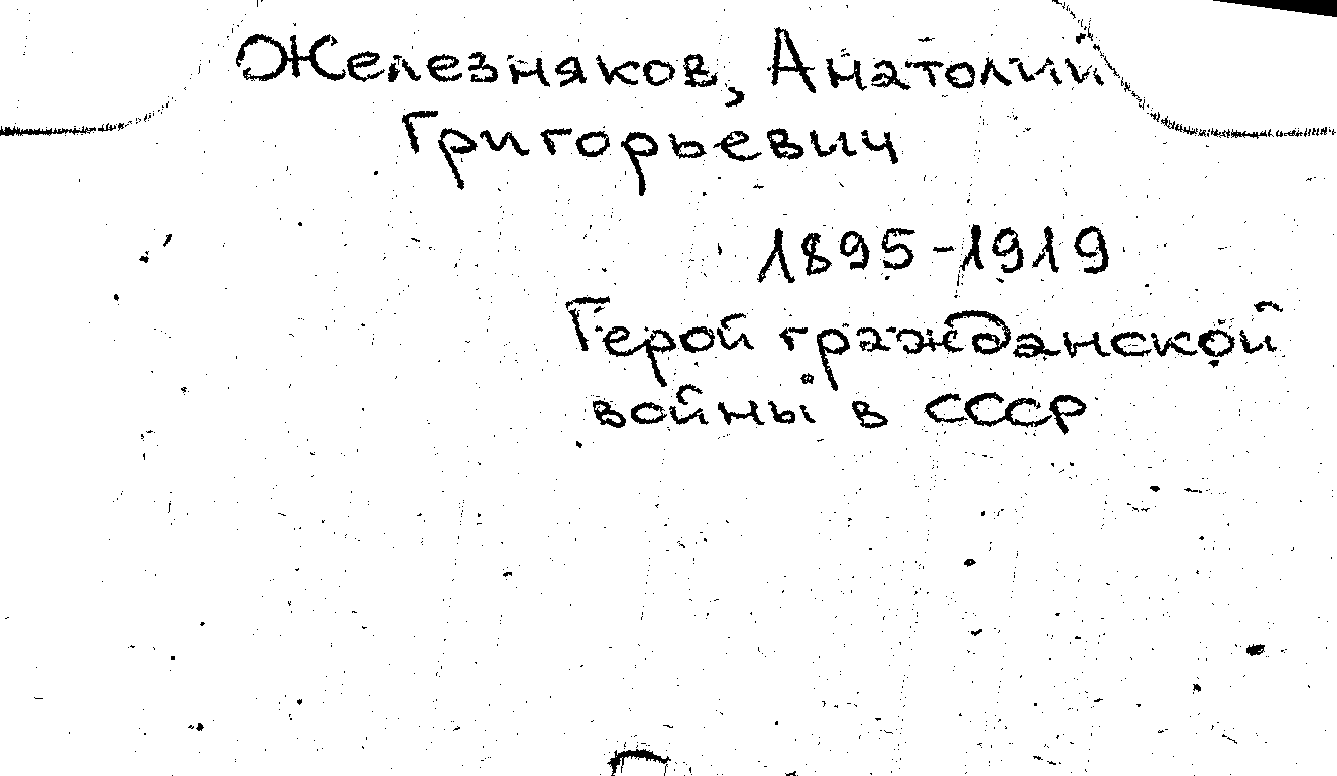 Железняков, Анатолий
Григорьевич
1895-1919
Герой гражданской
войны в СССР